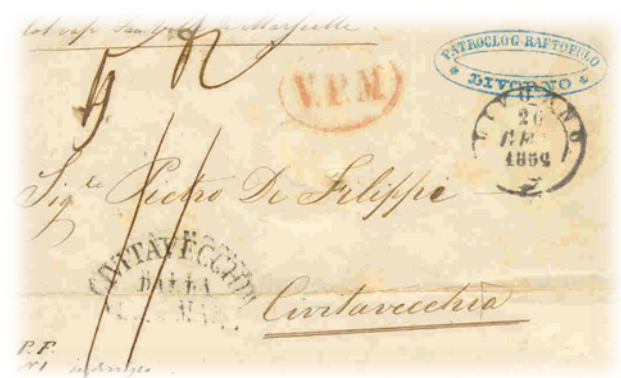 Col vap.
Marsella
V.P.M
PATROCLO G. RAFTOPULO
LIVORNO
LIVORNO
26
1852
Sig.re Pietro De Filippi
CIVITAVECCHIA
DALLA
Civitavecchia
P. F.
N 1